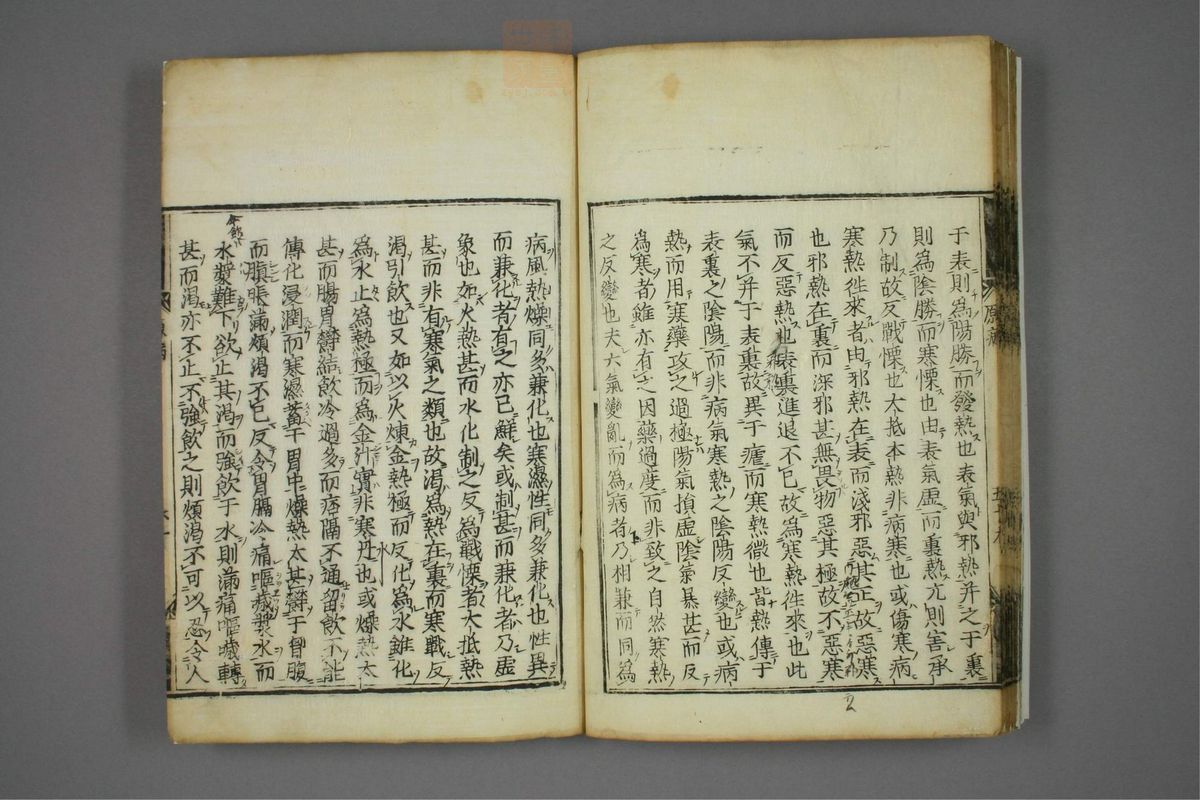 于表則為陽勝而發熱也表氣與邪熱并之于裏
則為陰勝而寒慄也由表氣虛而裏熱亢則害承
乃制故反戰慄也大抵本熱非病寒也或傷寒病
寒熱徃來者由邪熱在表而淺邪惡其正故惡寒
也邪熱在裏而深邪甚無畏物惡其極故不惡寒
而反惡熱也表裏進退不已故為寒熱徃來也此
氣不并于表裏故異于瘧而寒熱微也皆熱傳于
表裏之陰陽而非病氣寒熱之陰陽反變也或病
熱而用寒藥攻之過極陽氣損虛陰氣暴甚而反
為寒者雖亦有之因藥過度而非致之自然寒熱
之反變也夫六氣變亂而為病者乃相兼而同為
病風熱燥同多兼化也寒濕性同多兼化也性異
而兼化者有之亦已鮮矣或制甚而兼化者乃虛
象也如火熱甚而水化制之反為戰慄者大抵熱
甚而非有寒氣之類也故渴為熱在裏而寒戰反
渴引飲也又如以火煉金熱極而反化為水雖化
為水止為熱極而為金汁實非寒丹也或燥熱太
甚而腸胃鬱結飲冷過多而痞隔不通留飲不能
傳化浸潤而寒濕蓄于胃中燥熱太甚鬱于胷腹
而腹脹滿煩渴不已反令胃膈冷痛嘔噦漿水而
水漿難下欲止其渴而強飲于水則滿痛嘔噦轉
甚而渴亦不止不強飲之則煩渴不可以忍令人